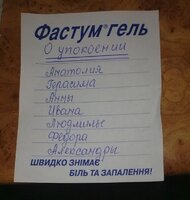 Фастум®гель
О упокоении
Анатолия
Герасима
Анны
Ивана
Людмилы
Федора
Александры
ШВИДКО ЗНІМАЄ
БІЛЬ ТА ЗАПАЛЕННЯ!